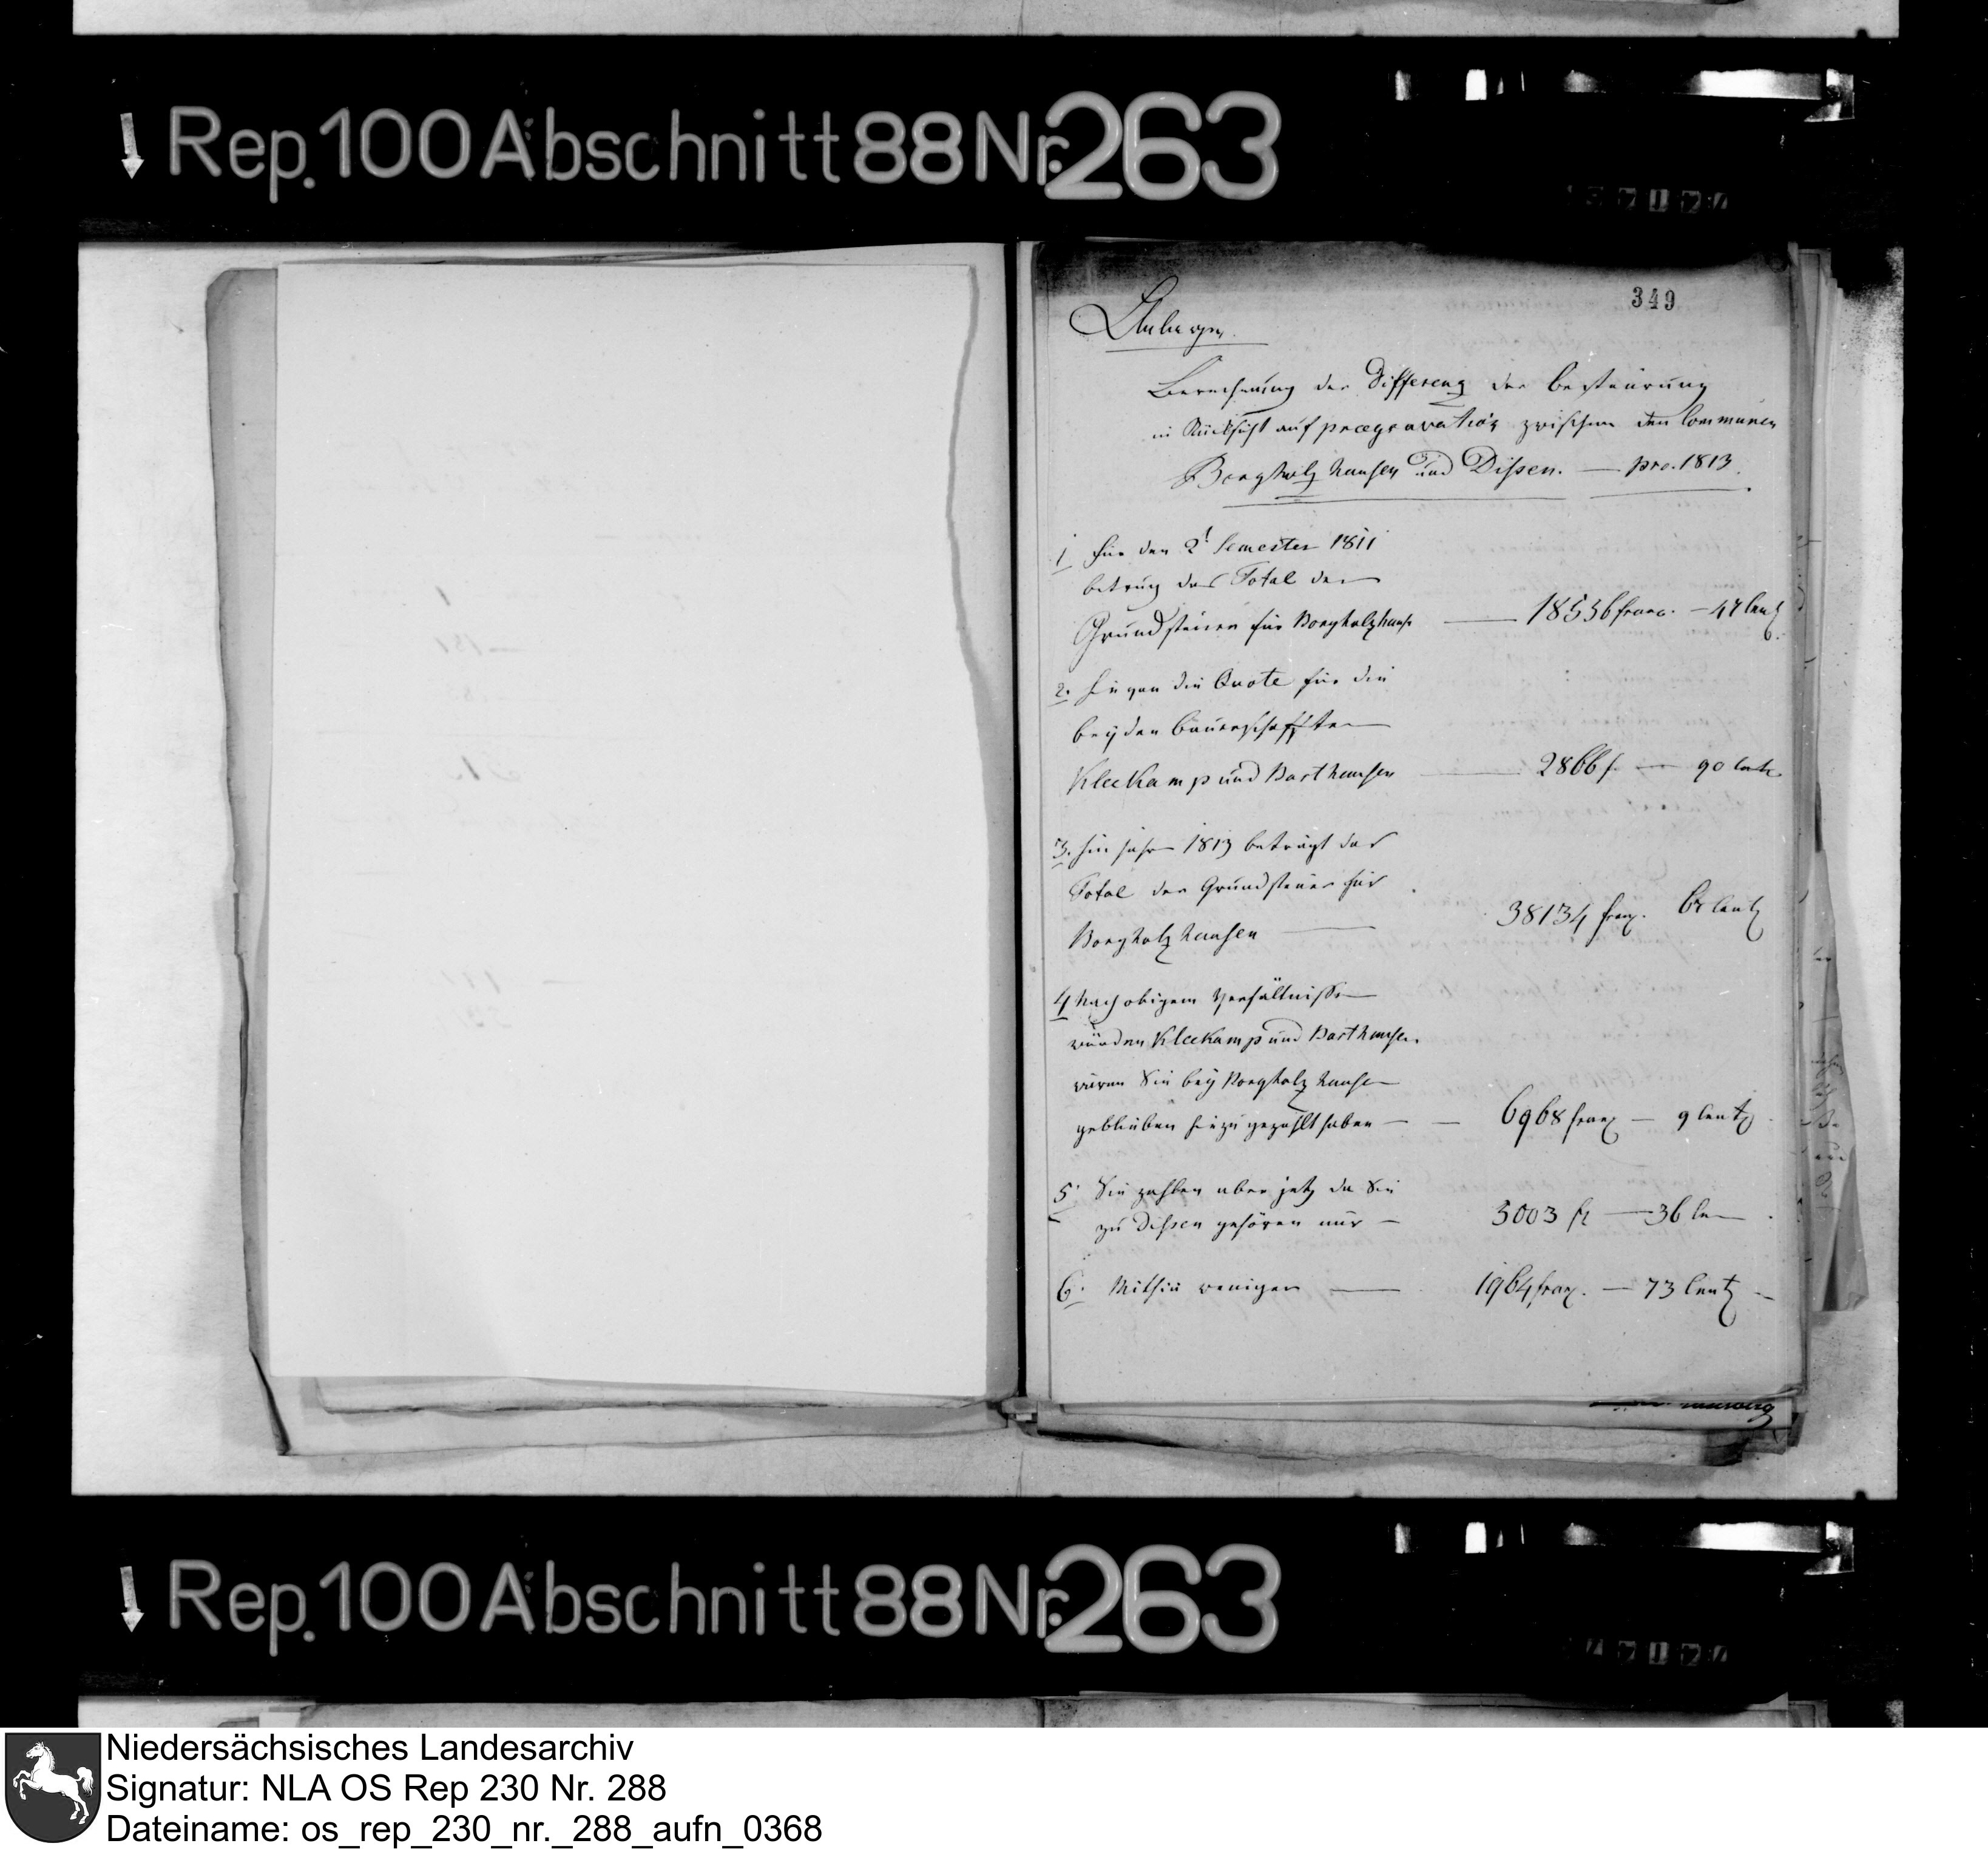 Rep.100 Abschnitt 88 Nr. 263
349
Anlage
Berechnung der Differenz der Besteurung
in Rücksicht auf praegravation zwischen den Communen
Borgholzhausen und Dissen. — pro. 1813.
1 Für den 2t Semester 1811
betrug das Total der
Grundsteuer für Borgholzhausen — 18536 franc. — 47 Cent
2. Hievon die Quote für die
beyden Bauerschafften
Kleekamp und Barthausen — 2866 f. — 90 Cent
3. Im Jahr 1813 beträgt das
Total der Grundsteuer für
Borgholzhausen — 38134 franz. Cent
4 Nach obigem Verhältnisse
würden Kleekamp und Barthausen
wären Sie bey Borgholzhausen
geblieben hiezu gezahlt haben — 6968 franz — 9 Cent
5. Sie zahlen aber jetz da Sie
zu Dissen gehören nur — 5003 fr — 36 Cen
6. Mithin weniger — 1964 franz. — 73 Cent —
Rep.100 Abschnitt 88 Nr. 263
Niedersächsisches Landesarchiv
Signatur: NLA OS Rep 230 Nr. 288
Dateiname: os_rep_230_nr._288_aufn_0368